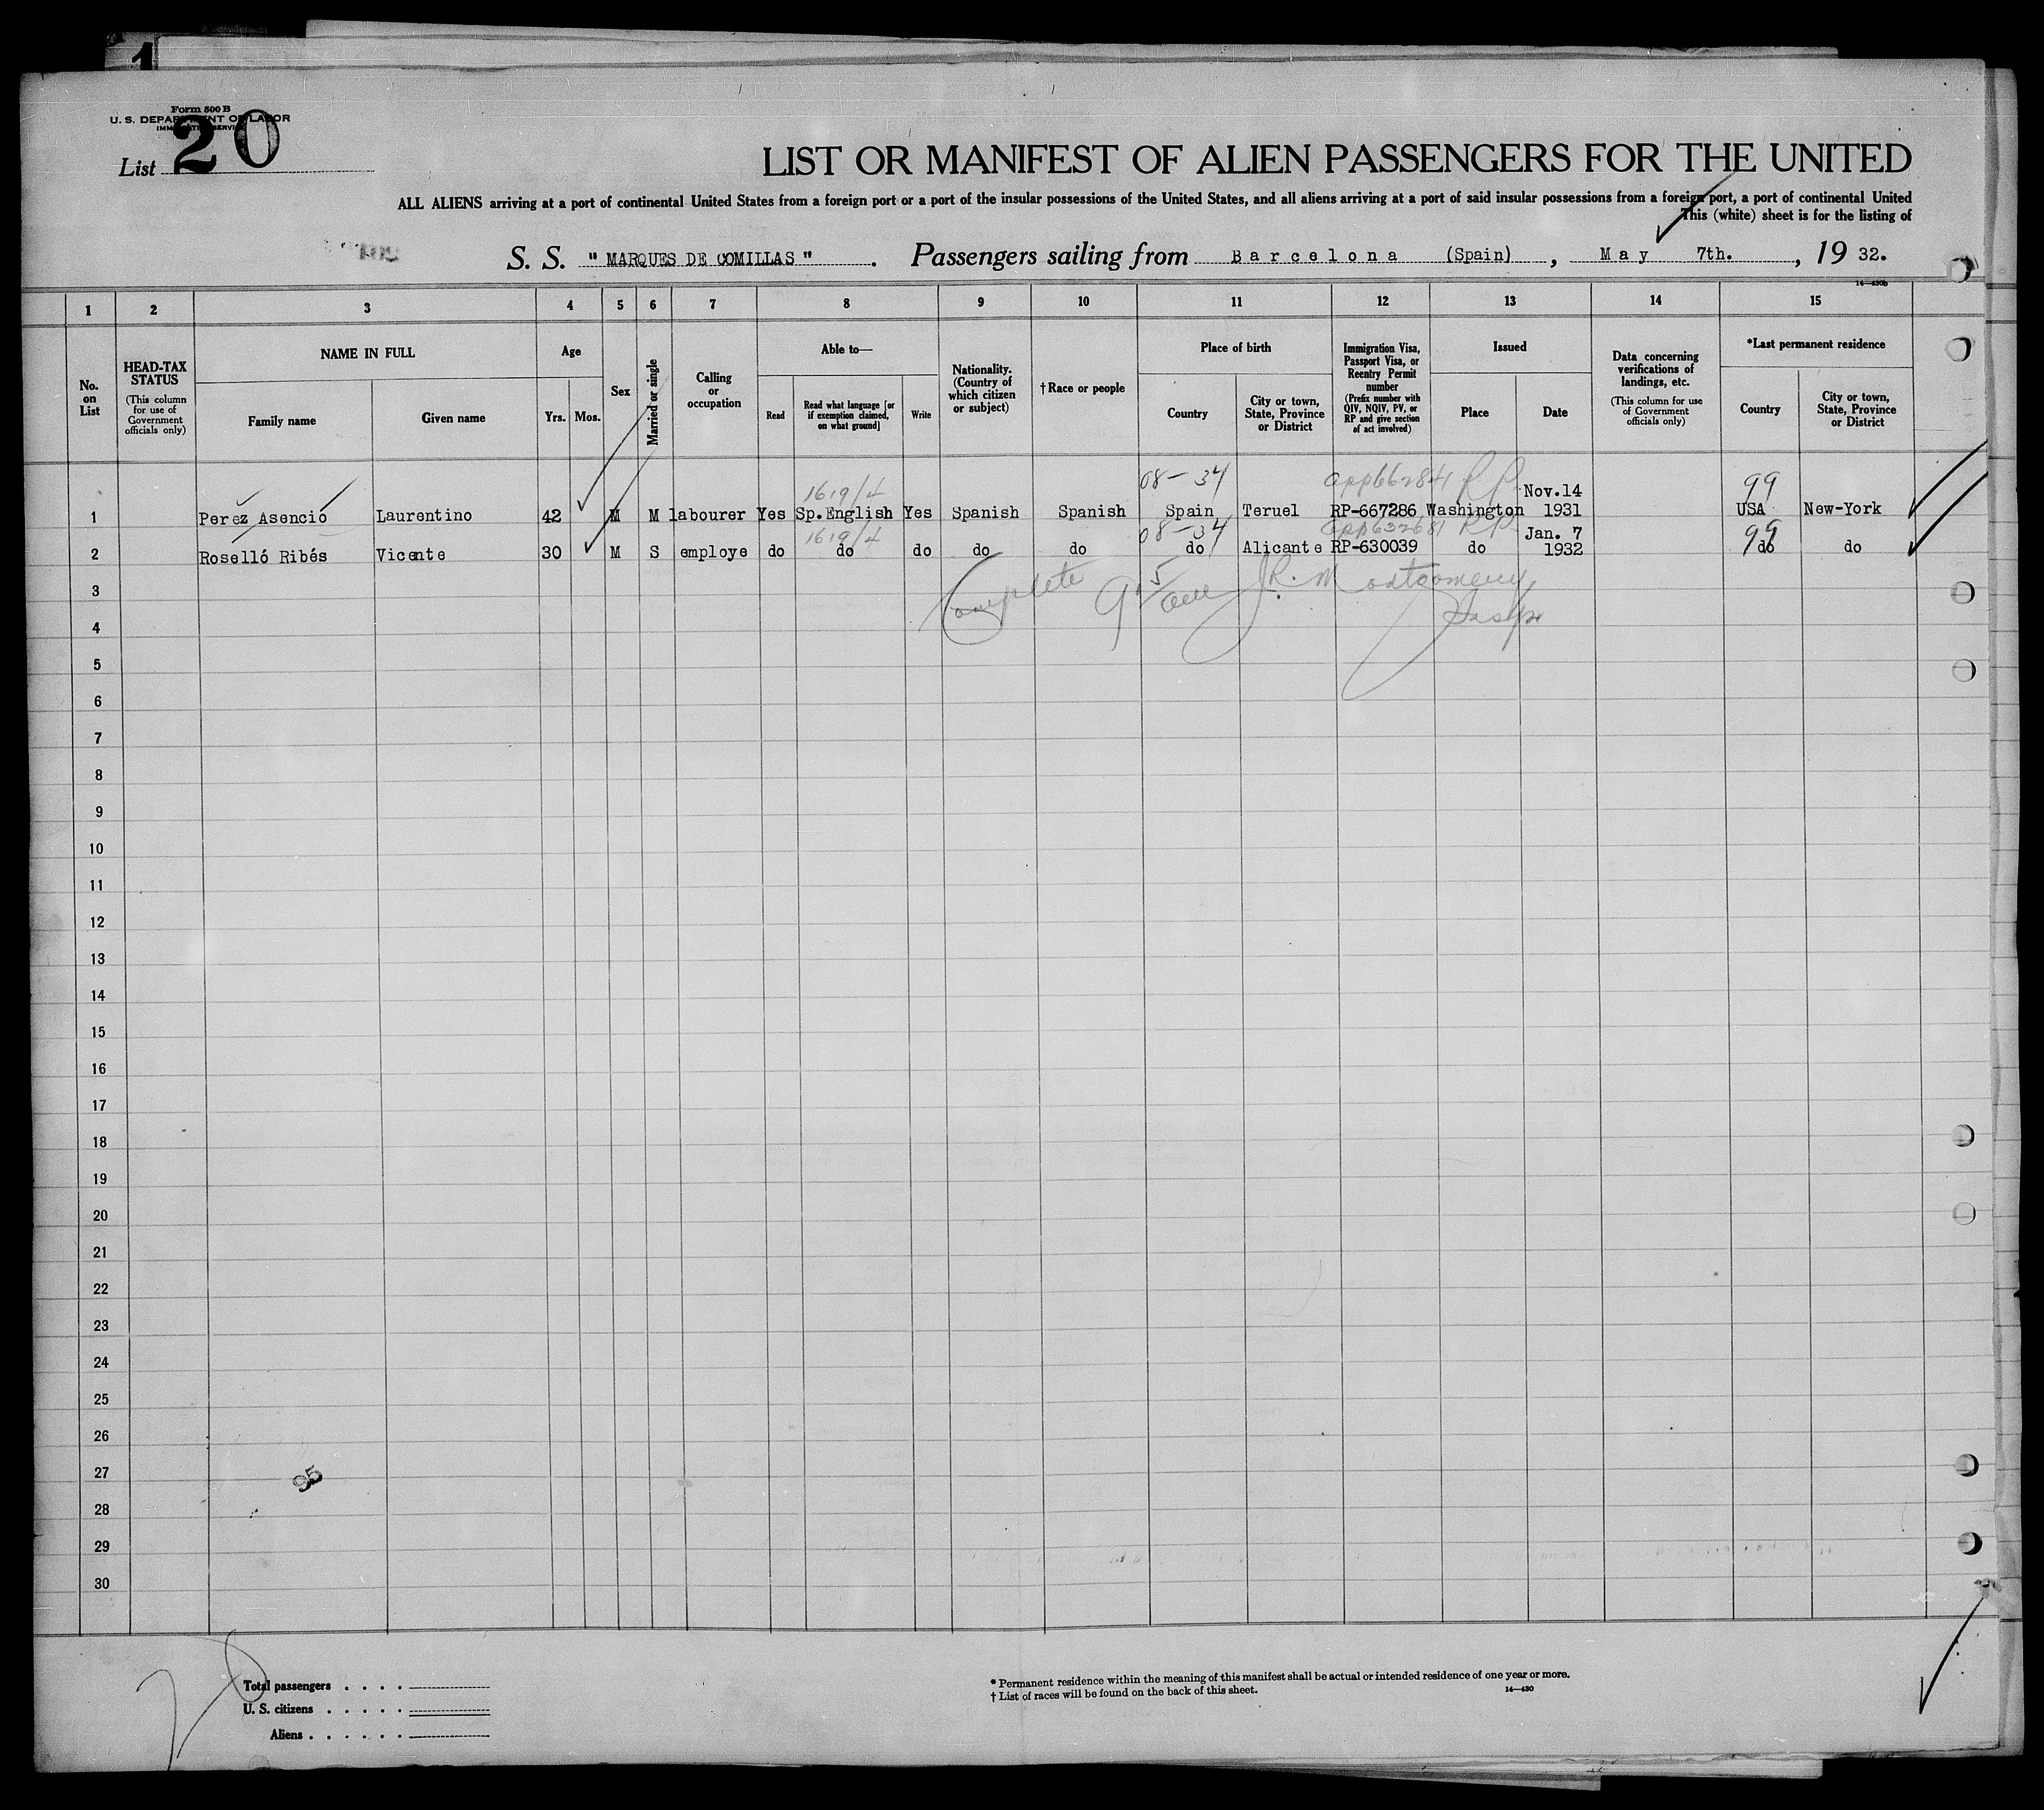 1
Form 500 B
U. S. DEPARTMENT OF LABOR
IMMIGRATION SERVICE
List 20
LIST OR MANIFEST OF ALIEN PASSENGERS FOR THE UNITED
ALL ALIENS arriving at a port of continental United States from a foreign port or a port of the insular possessions of the United States, and all aliens arriving at a port of said insular possessions from a foreign port, a port of continental United
This (white) sheet is for the listing of
S. S. " MARQUES DE COMILLAS " . Passengers sailing from Barcelona (Spain) , May 7th. , 19 32.
14—430b
1 2 3 4 5 6 7 8 9 10 11 12 13 14 15
No. on List
HEAD-TAX STATUS
(This column for use of Government officials only)
NAME IN FULL
Family name
Given name
Age
Yrs.
Mos.
Sex
Married or single
Calling or occupation
Able to—
Read
Read what language [or if exemption claimed, on what ground]
Write
Nationality. (Country of which citizen or subject)
† Race or people
Place of birth
Country
City or town, State, Province or District
Immigration Visa, Passport Visa, or Reentry Permit number
(Prefix number with QIV, NQIV, PV, or RP and give section of act involved)
Issued
Place
Date
Data concerning verifications of landings, etc.
(This column for use of Government officials only)
*Last permanent residence
Country
City or town, State, Province or District
1619/4 08-34 app662841 RP 99
1 Perez Asencio Laurentino 42 M M labourer Yes Sp.English Yes Spanish Spanish Spain Teruel RP-667286 Washington Nov.14 1931 USA New-York
1619/4 08-34 app632681 RP 99
2 Roselló Ribés Vicente 30 M S employe do do do do do do Alicante RP-630039 do Jan. 7 1932 do do
Complete J.R. Montgomery
3
4
5
6
7
8
9
10
11
12
13
14
15
16
17
18
19
20
21
22
23
24
25
26
27
95
28
29
30
Total passengers . . . .
U. S. citizens . . . . .
Aliens . . . . . .
* Permanent residence within the meaning of this manifest shall be actual or intended residence of one year or more.
† List of races will be found on the back of this sheet.
14—430